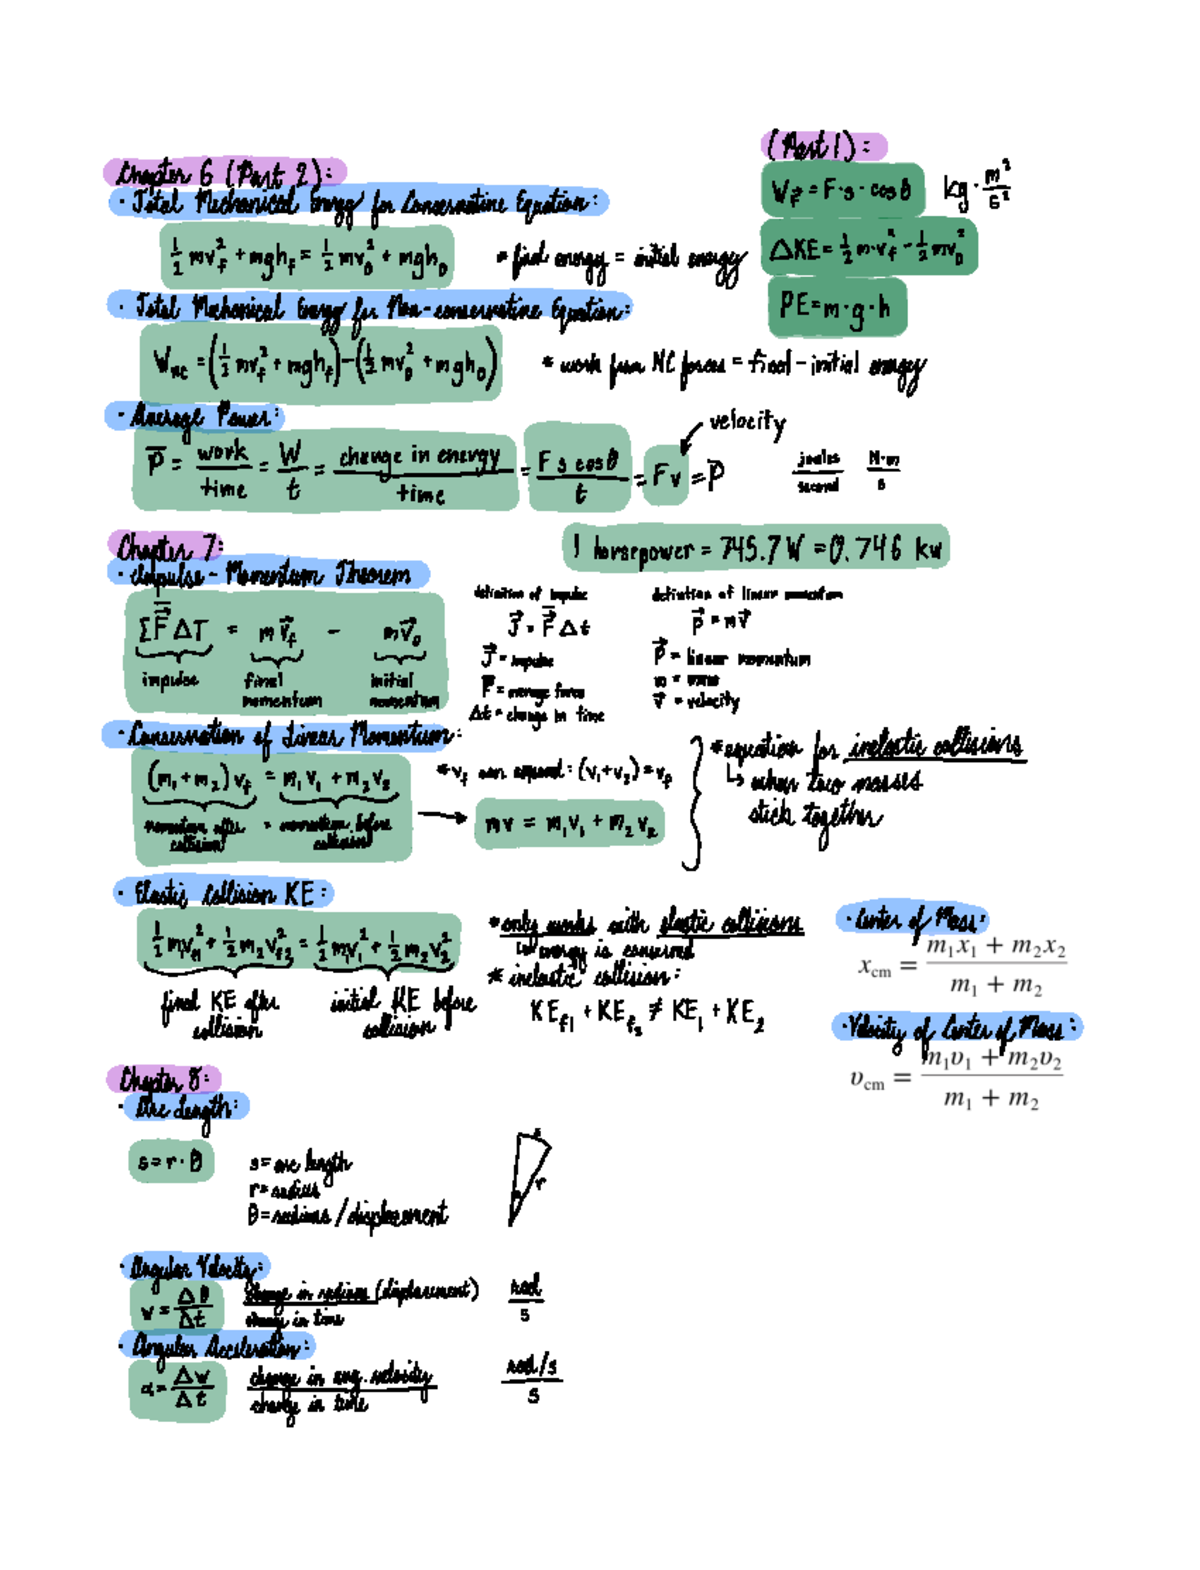 (Part 1):
Chapter 6 (Part 2):
W_F = F·s·cosθ kg·m²/s²
· Total Mechanical Energy for Conservative Equation:
½mv_f² + mgh_f = ½mv_0² + mgh_0 * final energy = initial energy
ΔKE = ½m·v_f² - ½mv_0²
PE = m·g·h
· Total Mechanical Energy for Non-conservative Equation:
W_nc = (½mv_f² + mgh_f) - (½mv_0² + mgh_0) * work from NC forces = final - initial energy
· Average Power:
velocity
P̅ = work/time = W/t = change in energy/time = F s cosθ/t = Fv = P̅ joules/second N·m/s
1 horsepower = 745.7 W = 0.746 kW
Chapter 7:
· Impulse - Momentum Theorem
ΣF̅ ΔT = mv⃗_f - mv⃗_0
impulse final momentum initial momentum
definition of impulse
J⃗ = F̅ Δt
J⃗ = impulse
F̅ = average force
Δt = change in time
definition of linear momentum
p⃗ = mv⃗
P⃗ = linear momentum
m = mass
v⃗ = velocity
· Conservation of Linear Momentum:
(m₁+m₂)v_f = m₁v₁ + m₂v₂
momentum after collision = momentum before collision
* v_f can : (v₁+v₂) = v_f
→ mv = m₁v₁ + m₂v₂
* equation for inelastic collisions
↳ when two masses
stick together
· Elastic Collision KE:
½m₁v_f1² + ½m₂v_f2² = ½m₁v₁² + ½m₂v₂²
final KE after collision initial KE before collision
* only works with elastic collisions
↳ energy is conserved
* inelastic collision:
KE_f1 + KE_f2 ≠ KE₁ + KE₂
· Center of Mass:
x_cm = (m₁x₁ + m₂x₂)/(m₁ + m₂)
· Velocity of Center of Mass:
v_cm = (m₁v₁ + m₂v₂)/(m₁ + m₂)
Chapter 8:
· Arc Length:
s = r·θ
s = arc length
r = radius
θ = radians/displacement
s
r
· Angular Velocity:
w = Δθ/Δt change in radians (displacement)/change in time rad/s
· Angular Acceleration:
α = Δw/Δt change in ang. velocity/change in time rad/s/s